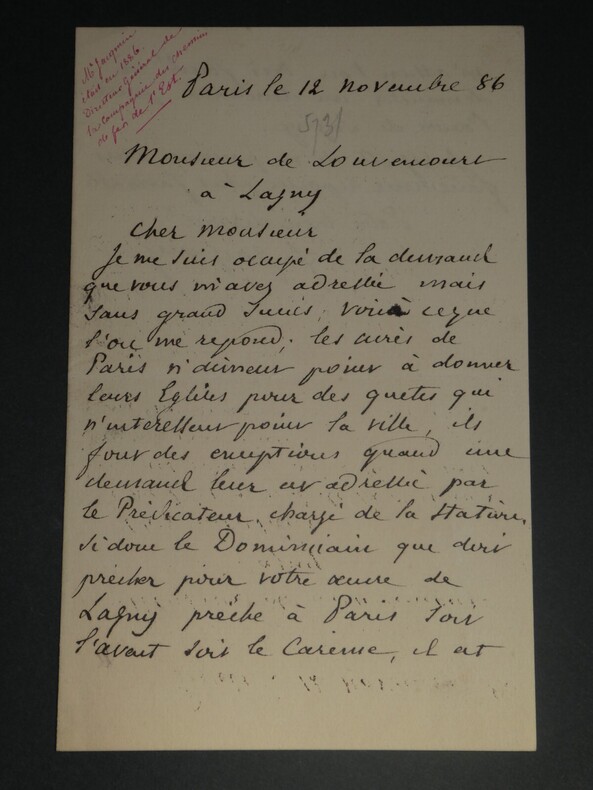 Mr Jacquin
était en 1886
Directeur Général de
la Compagnie du Chemin
de fer de l'Est.
Paris le 12 novembre 86
573/
Monsieur de Louvencourt
à Lagny
Cher Monsieur
Je me suis occupé de la demand
que vous m'avez adressée mais
sans grand succès, voici ce que
l'on me repond; les curés de
Paris n'aiment point à donner
leurs Eglises pour des quetes qui
n'interessent point la ville, ils
font des exceptions quand une
demand leur est adressée par
le Prédicateur chargé de la Station,
si donc le Dominicain que doit
precher pour votre œuvre de
Lagny prêche à Paris soit
l'avent soit le Careme, il est